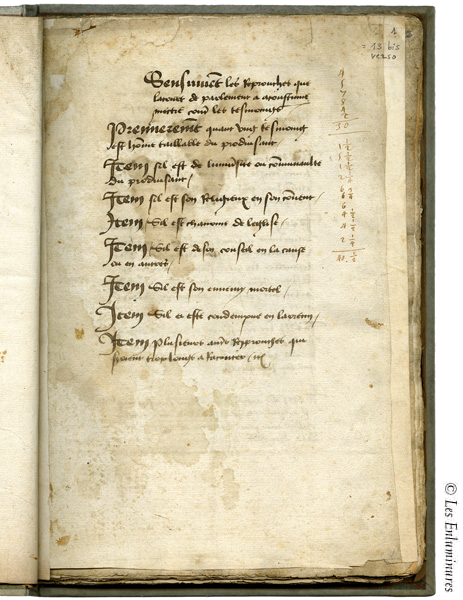 Sensuivent les Reprouches que
la court de parlement a acoustume
mettre contre les tesmoings
Premierement quant ung tesmoing
est homme taillable du produisant
Item sil est de luniversite ou communaulte
du produisant
Item sil est son Religieux en son couvent
Item sil est chanoine de leglise
Item sil est de son conseil en la cause
ou en autres
Item sil est son ennemy mortel
Item sil a este condempne en larrecin
Item plusieurs autres Reprouches qui
seroient trop longs a Raconter
1
= 13 bis
verso
© Les Enluminures